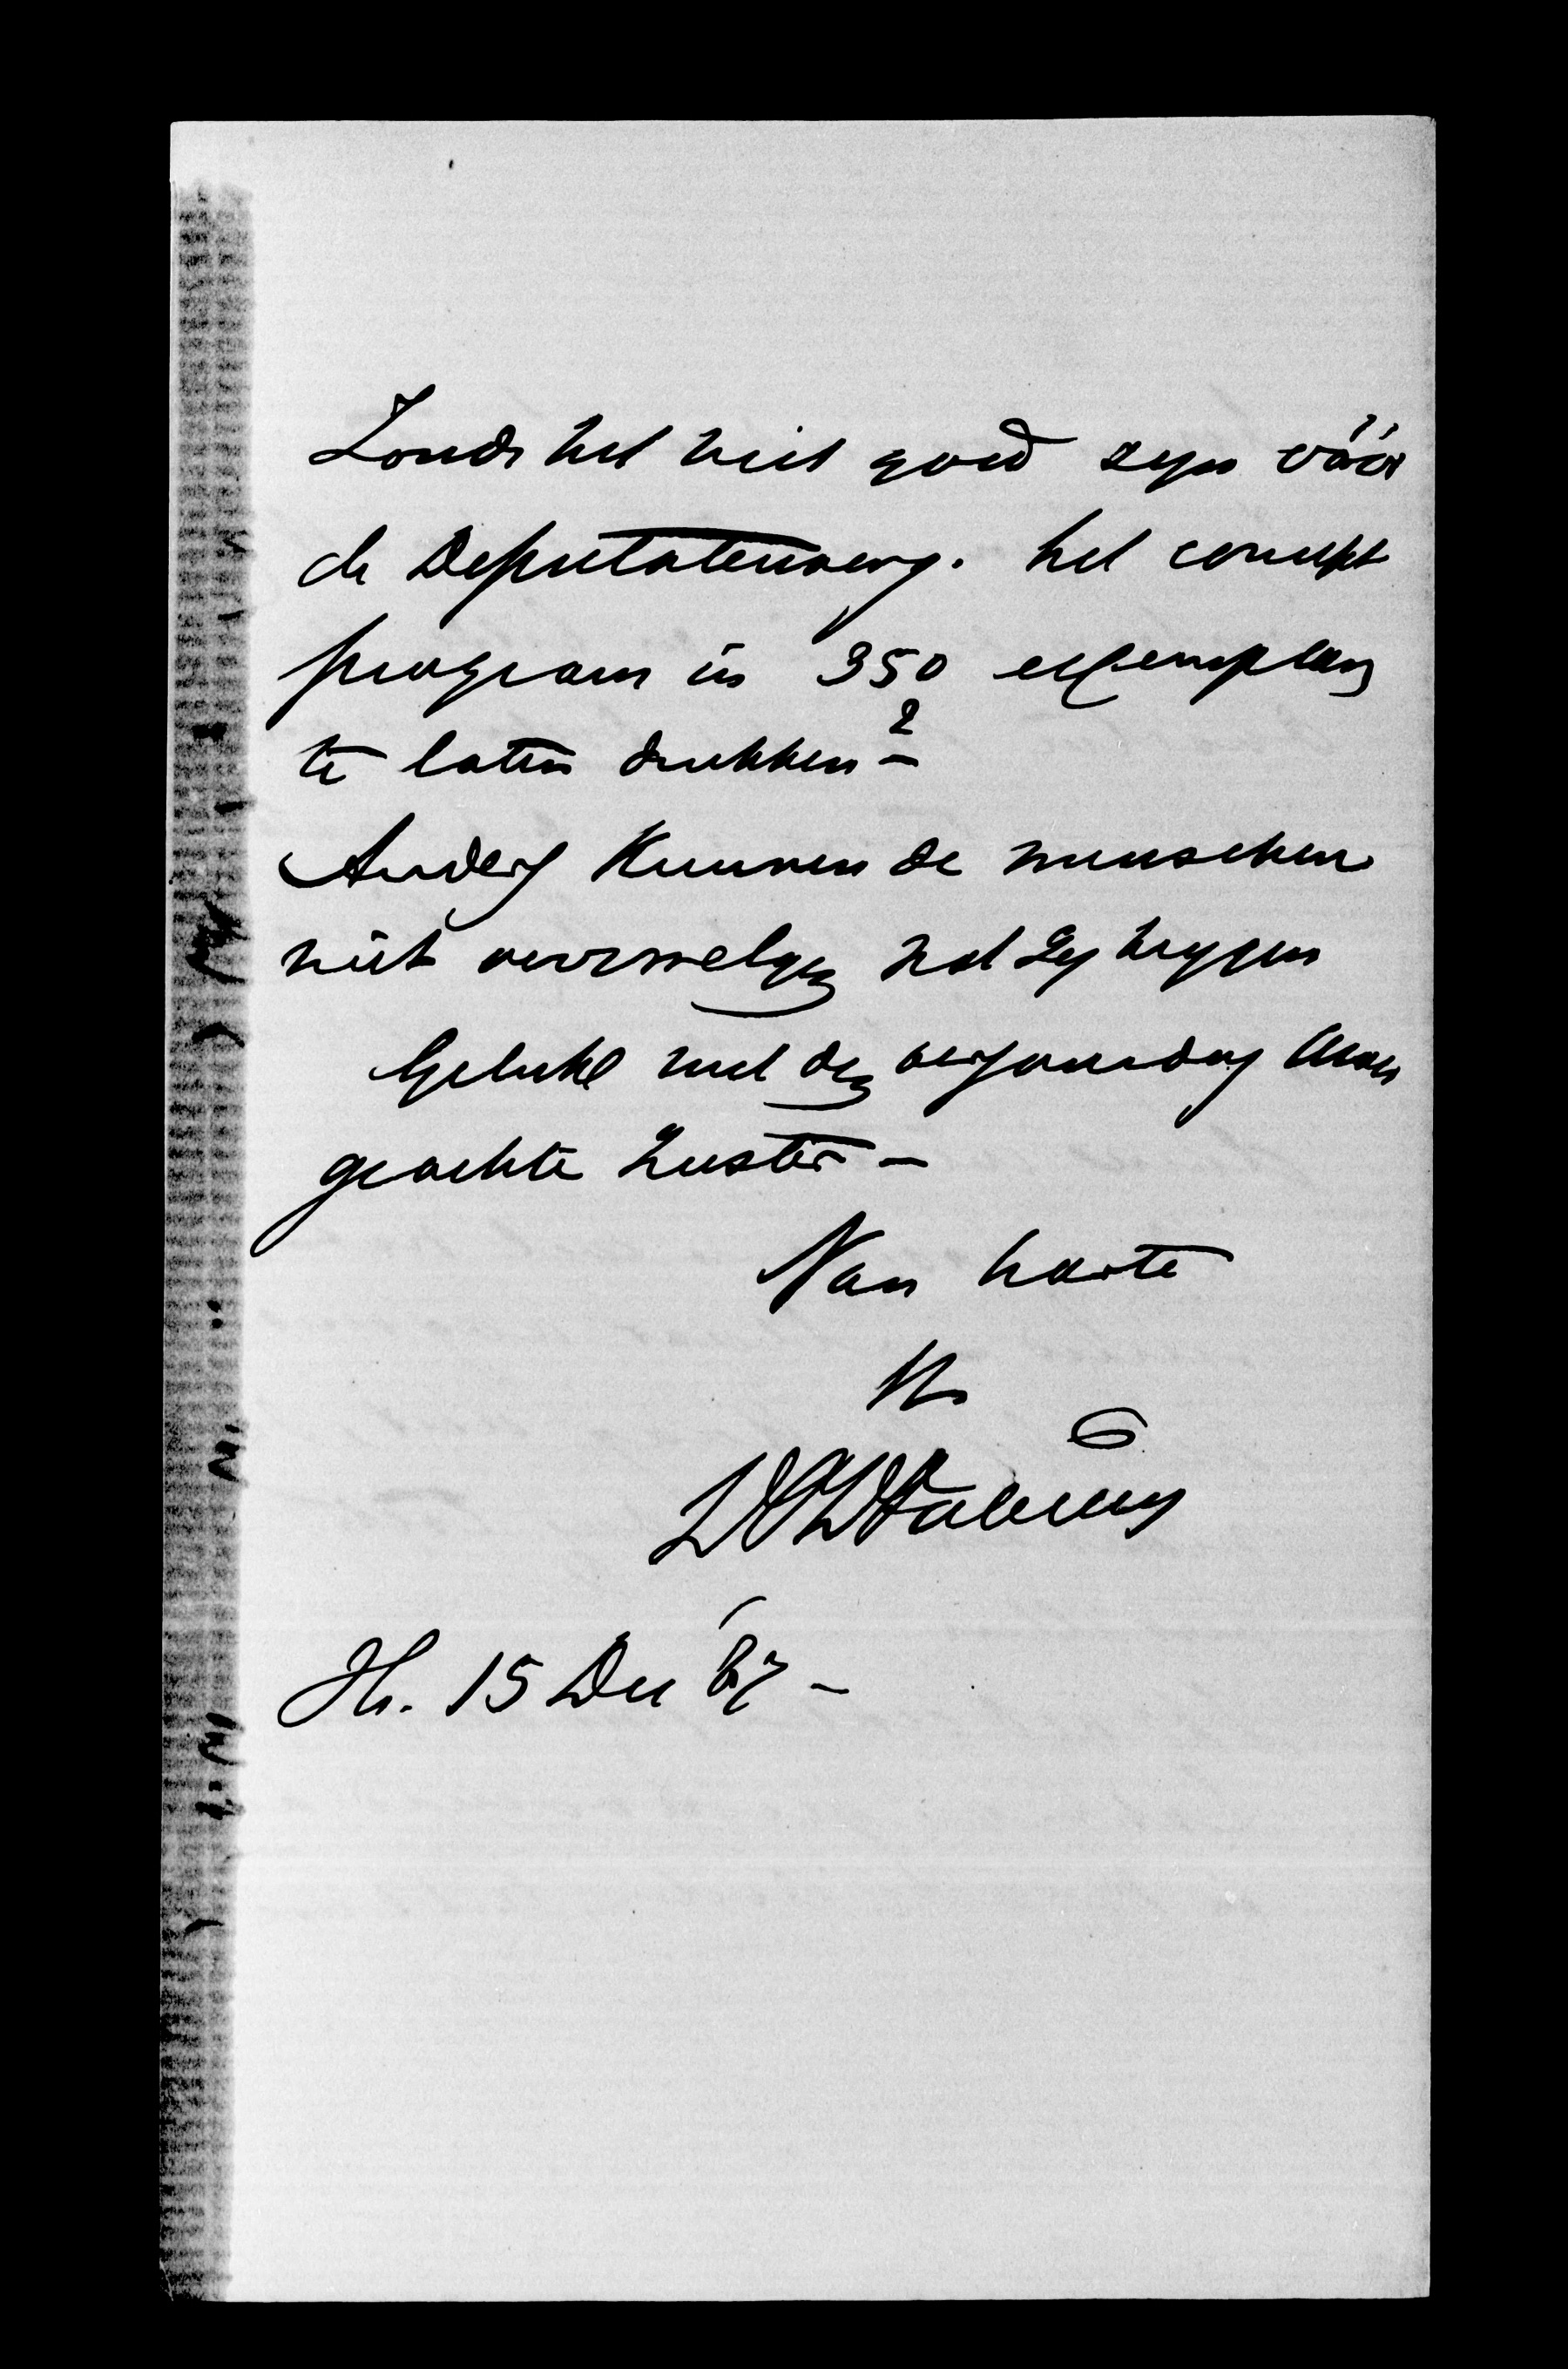 Zoude het niet goed zyn vóór
de Deputatenverg. het concept
program in 350 exemplaren
te laten drukken?
Anders kunnen de menschen
niet overwelgen wat zy krygen
Geluk met den verjaardag Uwer
geachte Zuster –
Van harte
H. 15 Dec '87 –